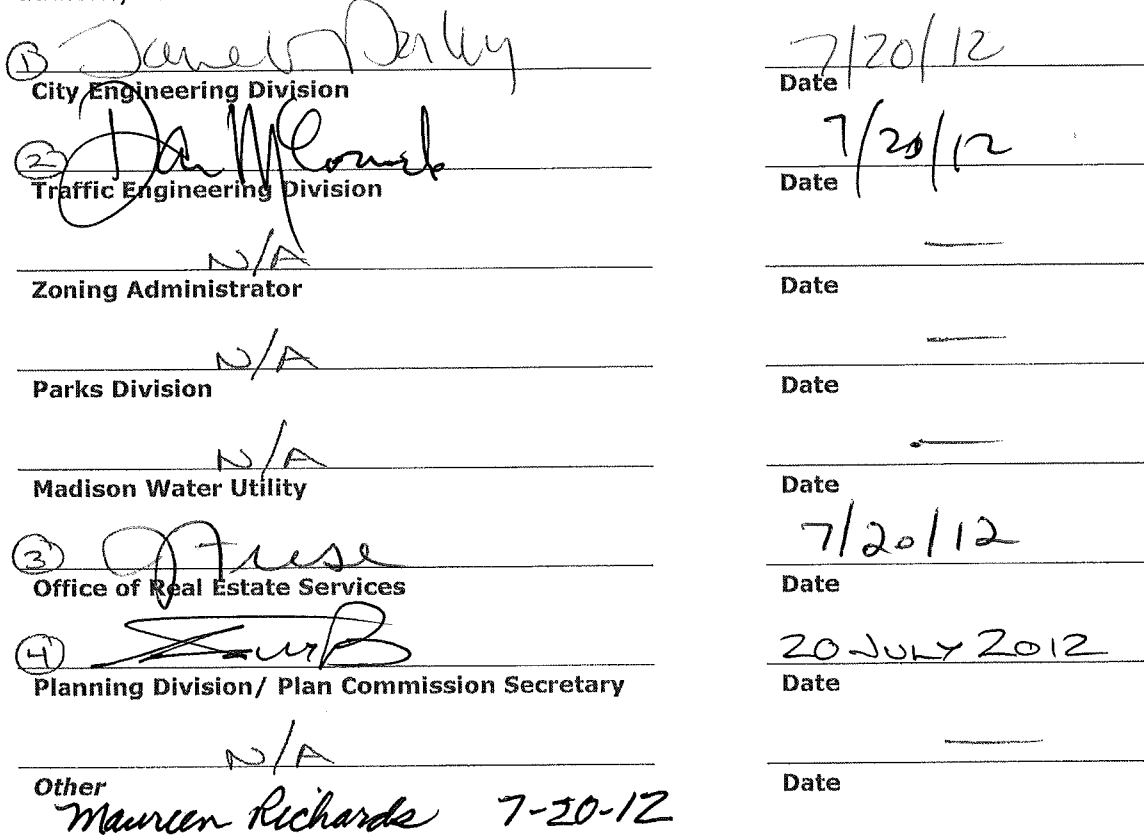 ① Janet Dailey 7/20/12
City Engineering Division Date
② Dan McCormick 7/20/12
Traffic Engineering Division Date
N/A —
Zoning Administrator Date
N/A —
Parks Division Date
N/A —
Madison Water Utility Date
③ 7/20/12
Office of Real Estate Services Date
④ 20 JULY 2012
Planning Division/ Plan Commission Secretary Date
N/A —
Other Date
Maureen Richards 7-20-12